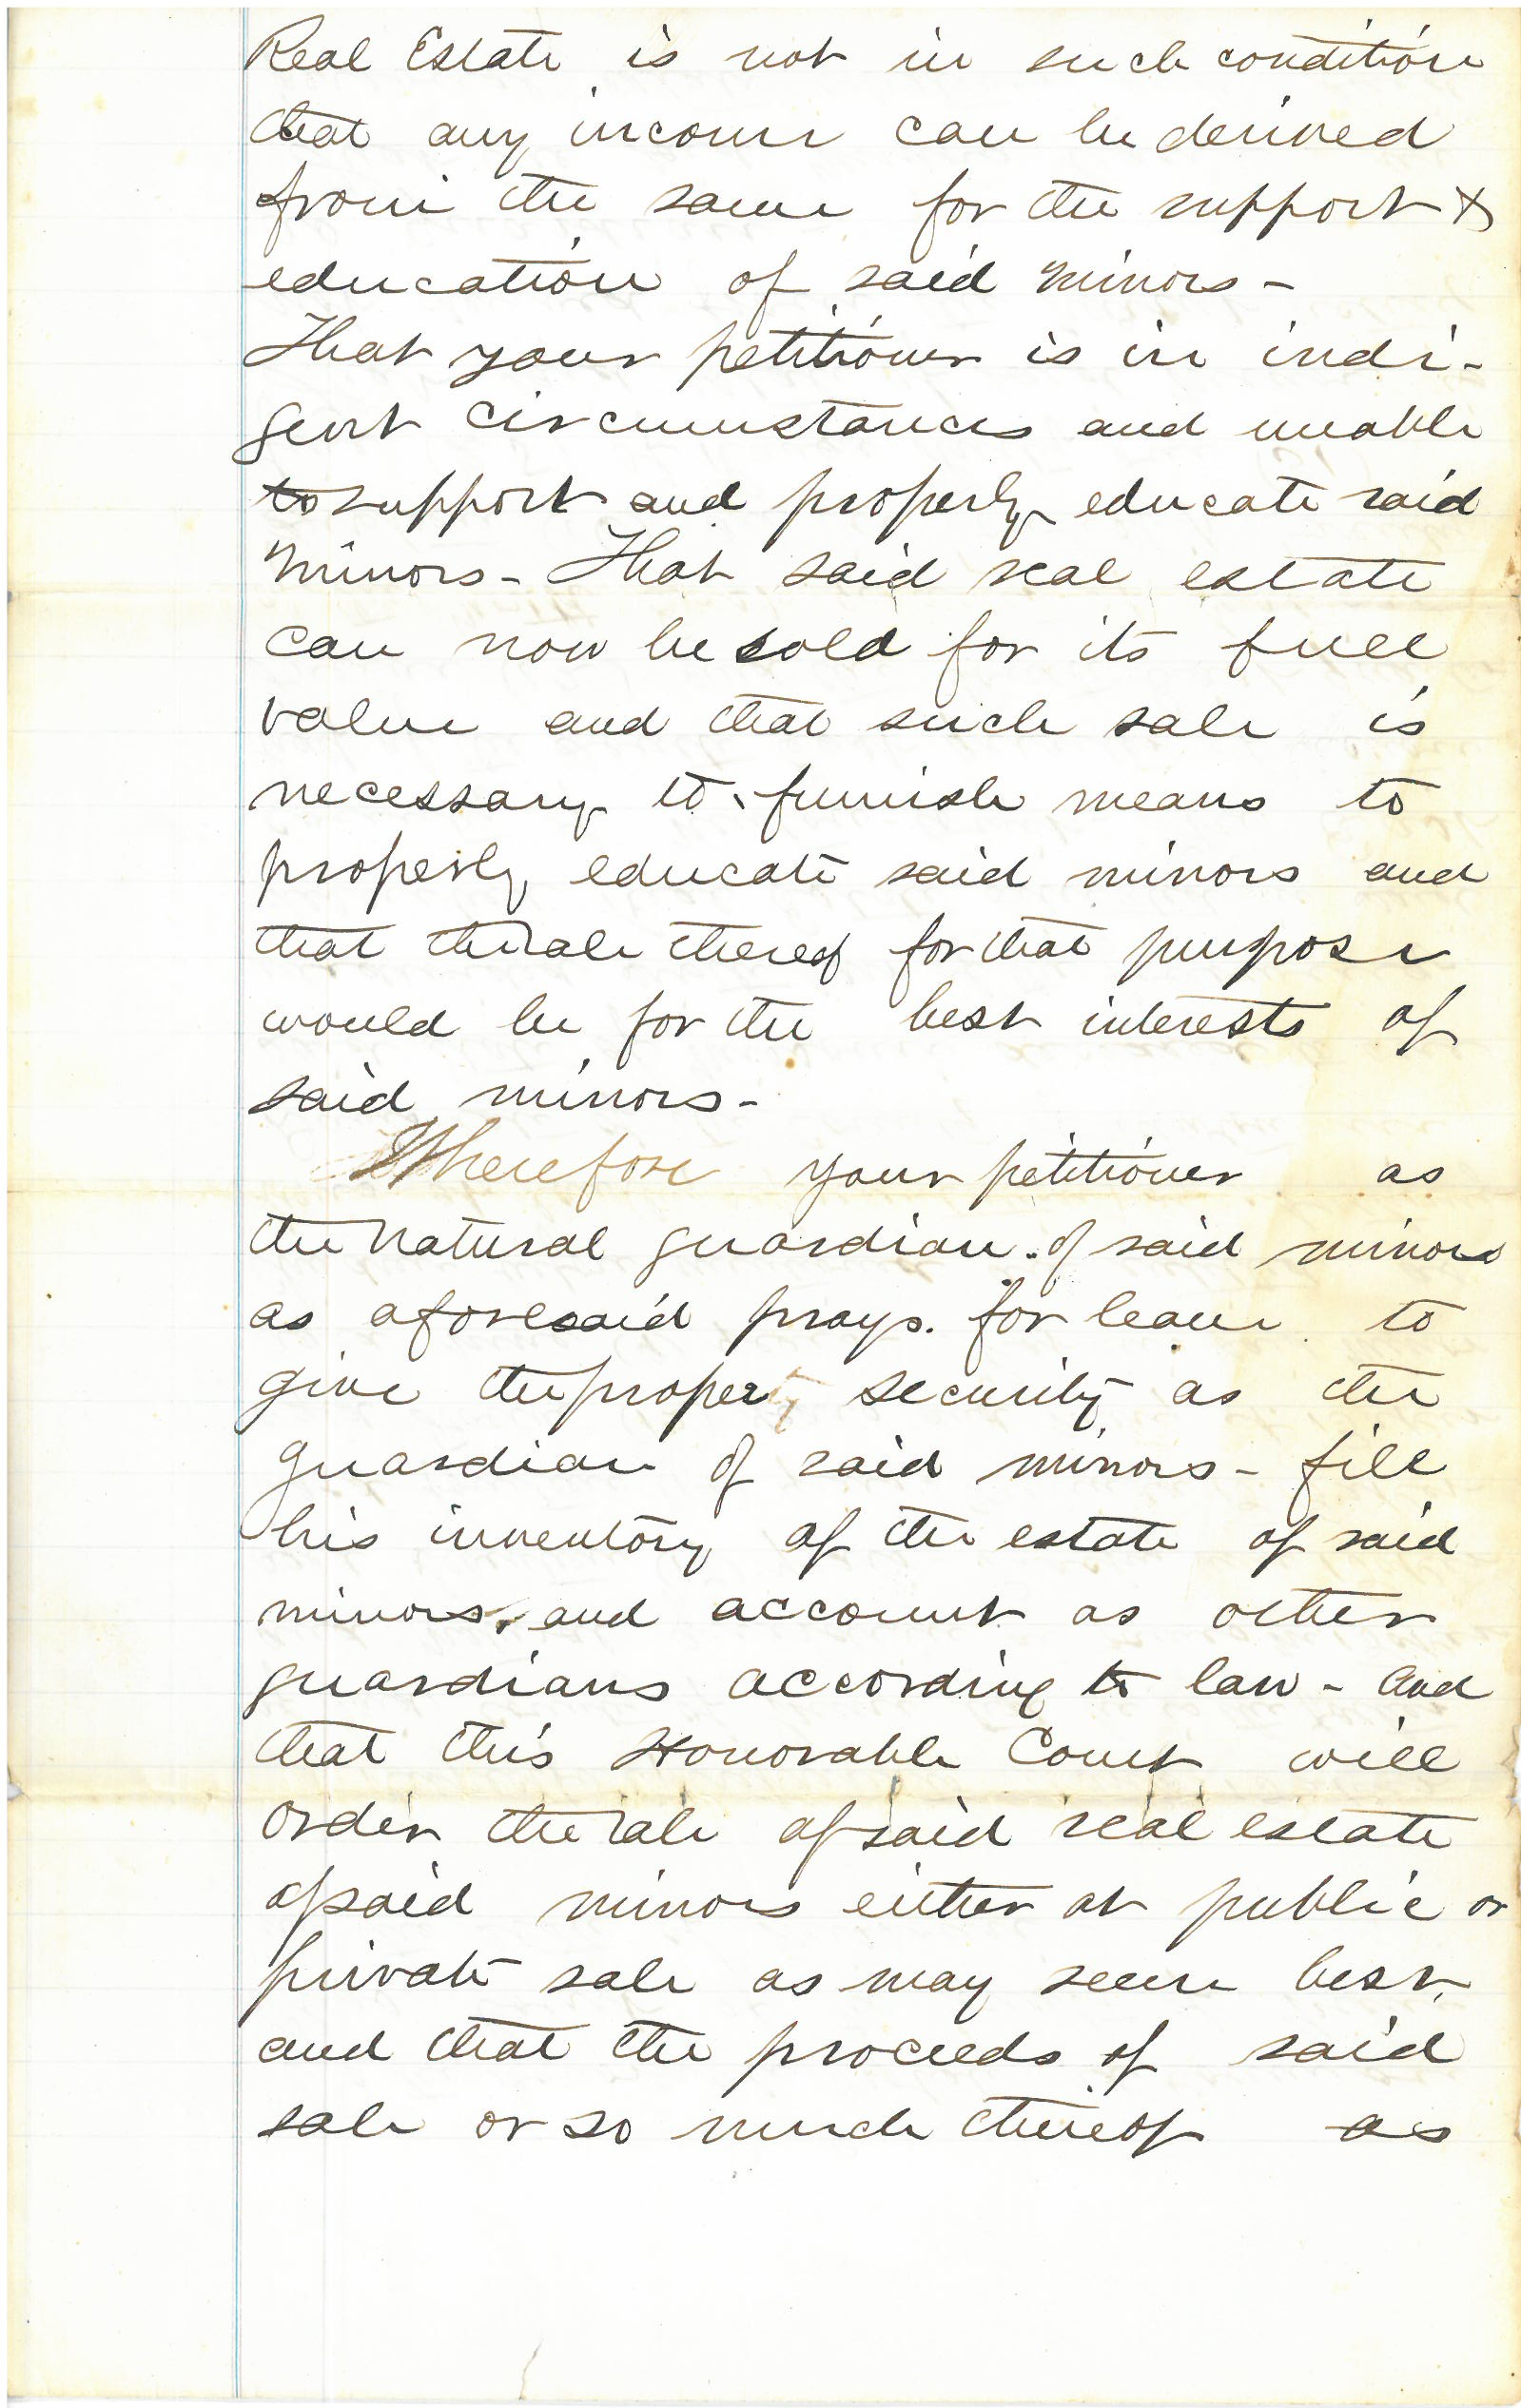 Real Estate is not in such condition
that any income can be derived
from the same for the support &
education of said minors -
That your petitioner is in indi-
gent circumstances and unable
to support and properly educate said
minors - That said real estate
can now be sold for its full
value and that such sale is
necessary to furnish means to
properly educate said minors and
that the sale thereof for that purpose
would be for the best interests of
said minors -
Wherefore your petitioner as
the natural guardian of said minors
as aforesaid prays for leave to
give the proper security as the
guardian of said minors - file
his inventory of the estate of said
minors, and account as other
guardians according to law - and
that this Honorable Court will
order the sale of said real estate
of said minors either at public or
private sale as may seem best,
and that the proceeds of said
sale or so much thereof as